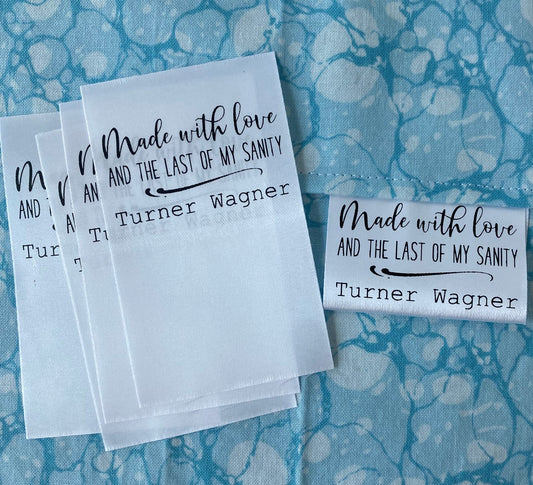 Made with love
AND THE LAST OF MY SANITY
Turner Wagner
Made with love
AND THE LAST OF MY SANITY
Turner Wagner
M
AND
Turner
M
AND
T
M
AN
Tu